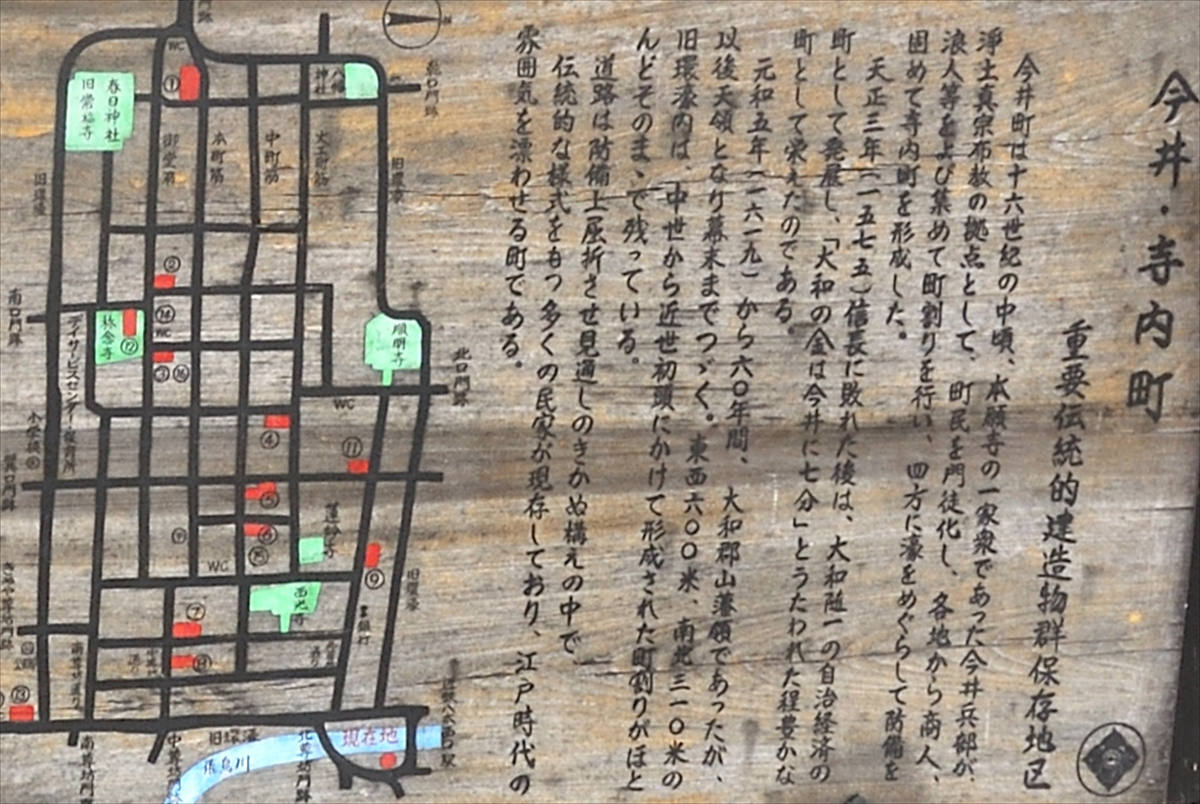 今井・寺内町
重要伝統的建造物群保存地区
今井町は十六世紀の中頃、本願寺の一家衆であった今井兵部が、
淨土真宗布教の拠点として、町民を門徒化し、各地から商人、
浪人等をよび集めて町割りを行い、四方に濠をめぐらして防備を
固めて寺内町を形成した。
天正三年(一五七五)信長に敗れた後は、大和随一の自治経済の
町として発展し、「大和の金は今井に七分」とうたわれた程豊かな
町として栄えたのである。
元和五年(一六一九)から六〇年間、大和郡山藩領であったが、
以後天領となり幕末までつゞく。東西六〇〇米、南北三一〇米の
旧環濠内は、中世から近世初頭にかけて形成された町割りがほと
んどそのまゝで残っている。
道路は防備上屈折させ見通しのきかぬ構えの中で、
伝統的な様式をもつ多くの民家が現存しており、江戸時代の
雰囲気を漂わせる町である。
WC
①
春日神社
旧常福寺
八幡
神社
御堂筋
本町筋
中町筋
大工町筋
旧環濠
旧環濠
②
南口門跡
⑭
WC
称念寺
⑫
③⑯
順明寺
北口門跡
デイサービスセンター・保育所
WC
小学校
④
⑪
⑤
⑥
⑮
蓮妙寺
WC
⑨
旧環濠
西光寺
⑦
南尊坊通り
⑬
南尊坊門跡
中尊坊門跡
旧環濠
北尊坊門跡
現在地
飛鳥川